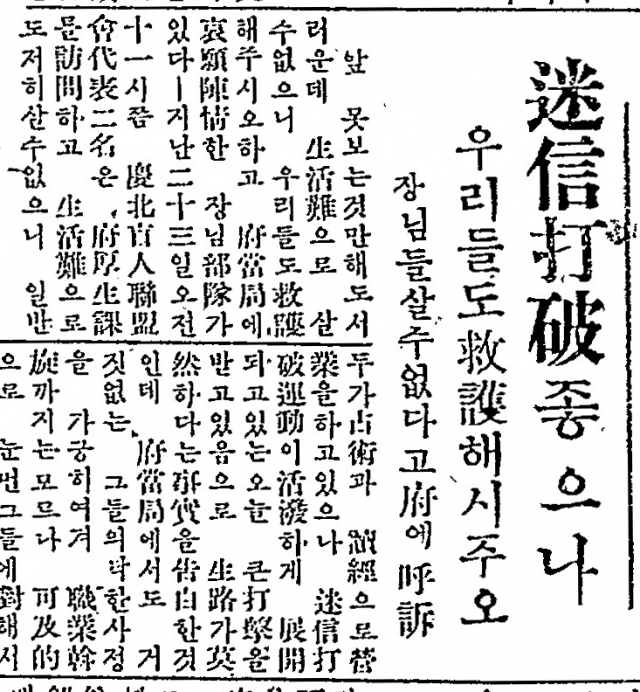 迷信打破좋으나
우리들도救護해시주오
장님들살수없다고府에呼訴
앞 못보는것만해도서
러운데 生活難으로 살
수없으니 우리들도救護
해주시오하고 府當局에
哀願陳情한 장님部隊가
있다ㅣ지난二十三일오전
十一시쯤 慶北盲人聯盟
會代表二名은 府厚生課
를訪問하고 生活難으로
도저히살수없으니 일반
두가占術과 讀經으로營
業을하고있으나 迷信打
破運動이活潑하게 展開
되고있는오늘 큰打擊을
받고있음으로 生路가莫
然하다는事實을告白한것
인데 府當局에서도 거
짓없는 그들의딱한사정
을 가긍히여겨 職業斡
旋까지는모므나 可及的
으로 눈먼그들에對해서